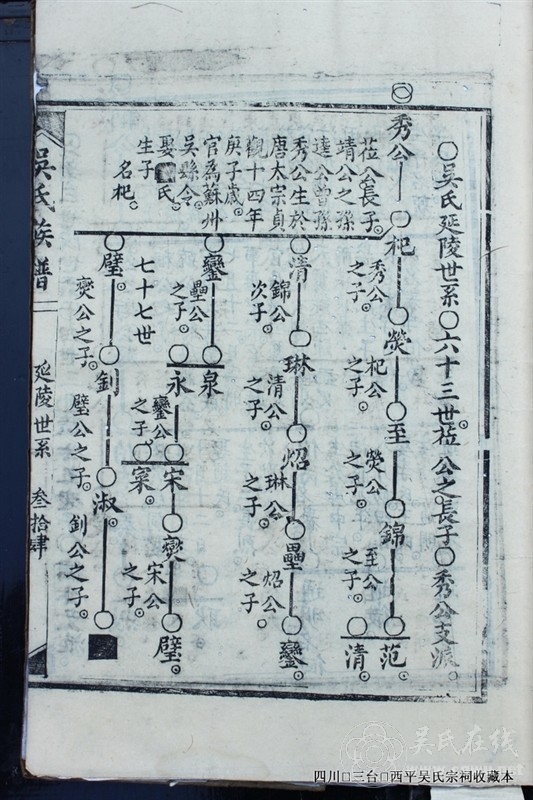 ○吳氏延陵世系○六十三世莅公之長子○秀公支派。
秀公
莅公長子。
靖公之孫
達公曾孫
秀公生於
唐太宗貞
觀十四年
庚子歲。
官為蘇州
吳縣令。
娶 氏
生子
名杞。
杞
秀公
之子。
熒
杞公
之子。
至
熒公
之子。
錦
至公
之子。
范。
清。
清
錦公
次子。
琳
清公
之子。
炤
琳公
之子。
壘
炤公
之子。
鑾。
鑾
壘公
之子。
泉
永
鑾公
之子。
宋
寀。
爕
宋公
之子。
璧。
七十七世
璧。
爕公
之子。
釗
璧公
之子。
淑。
釗公
之子。
吳氏族譜
延陵世系
叁拾肆
吴氏在线
四川□三台□西平吴氏宗祠收藏本